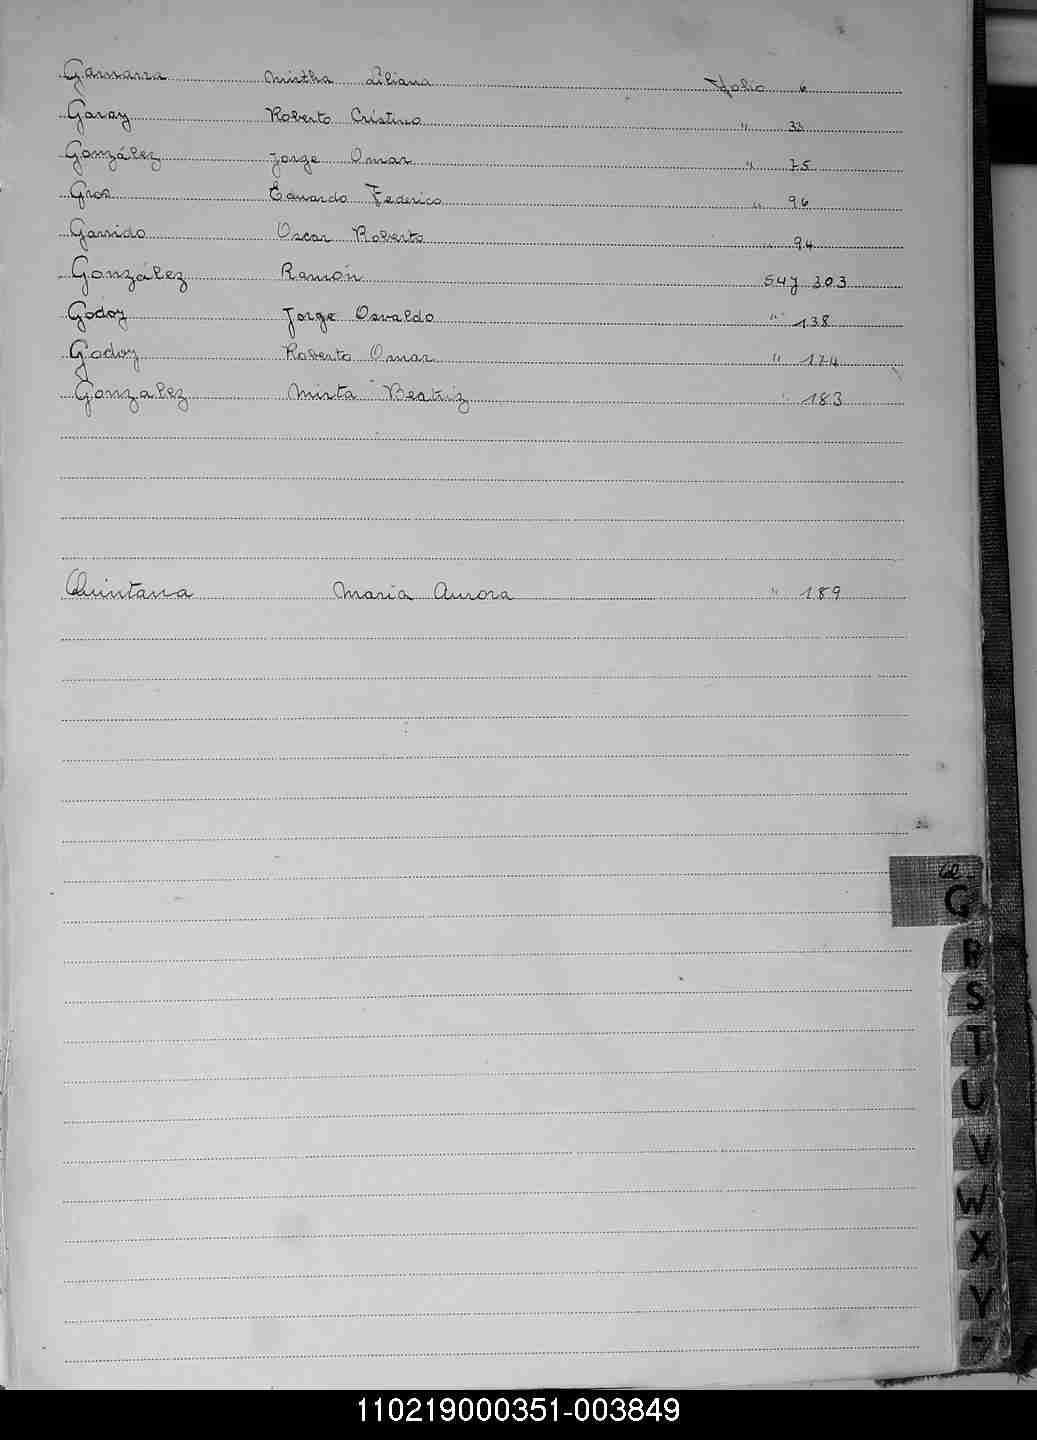 Gamarra Mirtha Liliana Folio 6
Garay Roberto Cristino " 33
González Jorge Omar " 75
Gros Eduardo Federico " 96
Garrido Oscar Roberto " 94
González Ramón 303
Godoy Jorge Osvaldo " 138
Godoy Roberto Omar " 174
Gonzalez Mirta Beatriz " 183
Quintana Maria Aurora " 189
G
R
S
T
U
V
W
X
Y
Z
110219000351-003849